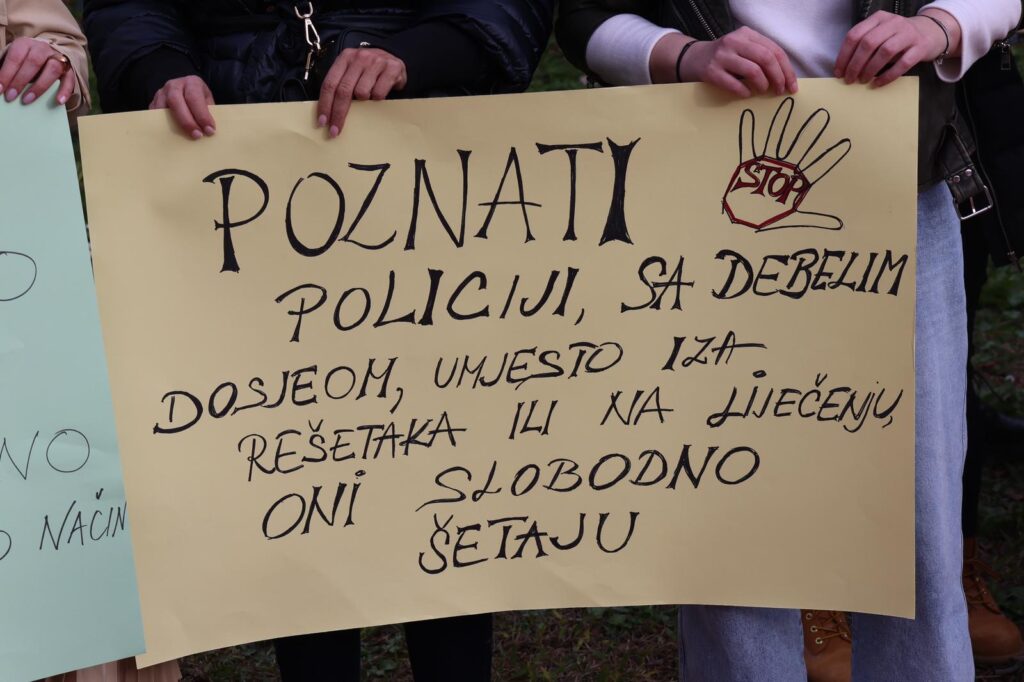 POZNATI
STOP
POLICIJI, SA DEBELIM
DOSJEOM, UMJESTO IZA
REŠETAKA ILI NA LIJEČENJU,
ONI SLOBODNO
ŠETAJU
NAČIN